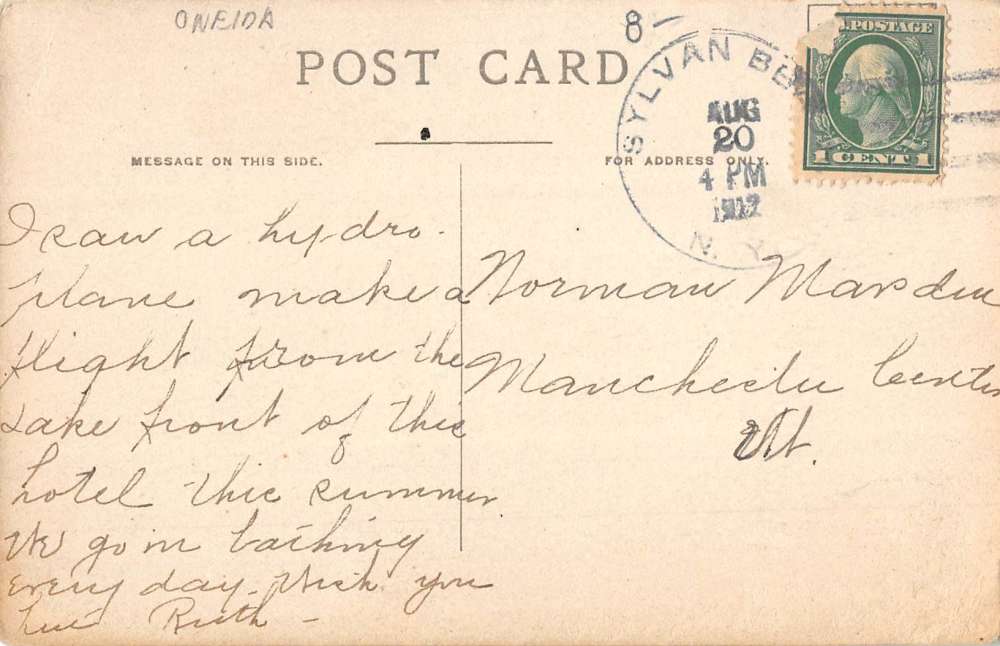 ONEIDA
8-
POST CARD
SYLVAN BEA
AUG
20
4 PM
1917
N. Y.
POSTAGE
1 CENT 1
MESSAGE ON THIS SIDE.
FOR ADDRESS ONLY.
I saw a hydro-
plane make a
flight from the
Lake front of this
hotel this summer
We go in bathing
every day. Wish you
Ruth -
Norman Marsden
Manchester Center
Vt.